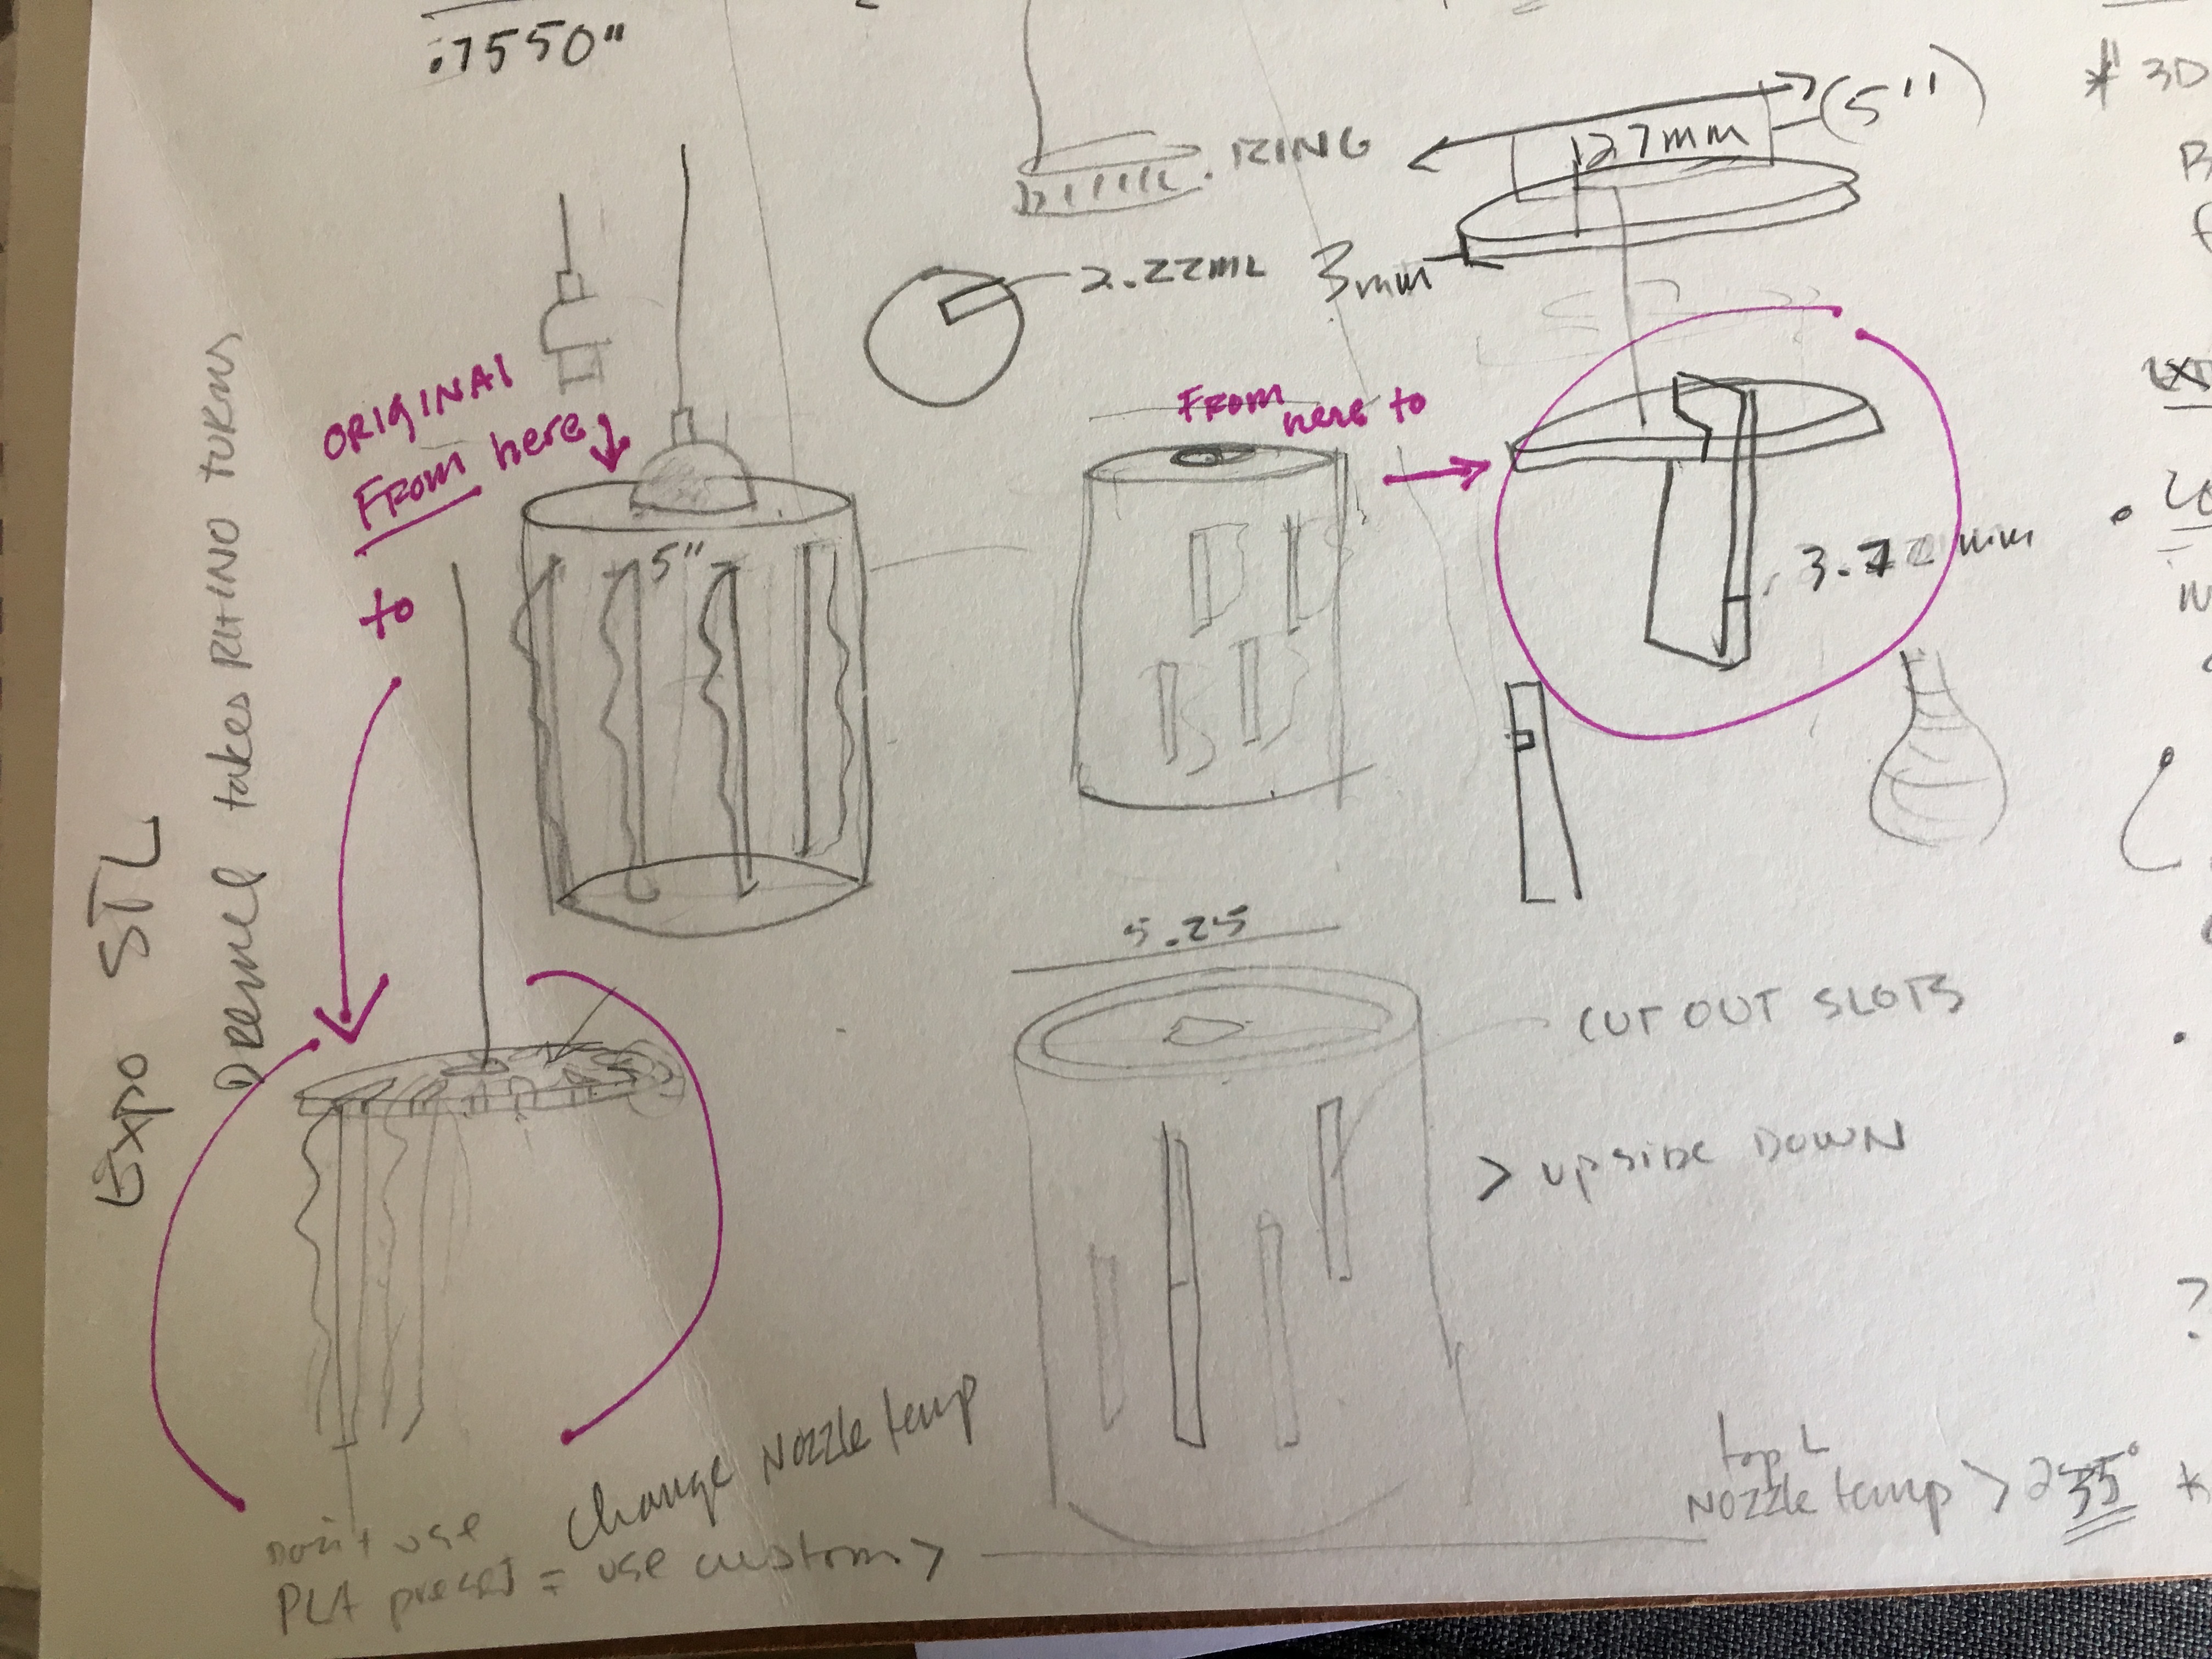 .7550"
RING
127mm
(5")
* 3D
2.22mL
3mm
ORIGINAL
From here
to
From here to
5"
Expo STL
DREMEL takes RHINO TURMS
5.25
CUT OUT SLOTS
> upside DOWN
?
change Nozzle temp
Don't use
PLA preset = use custom >
top L
Nozzle temp > 235° *